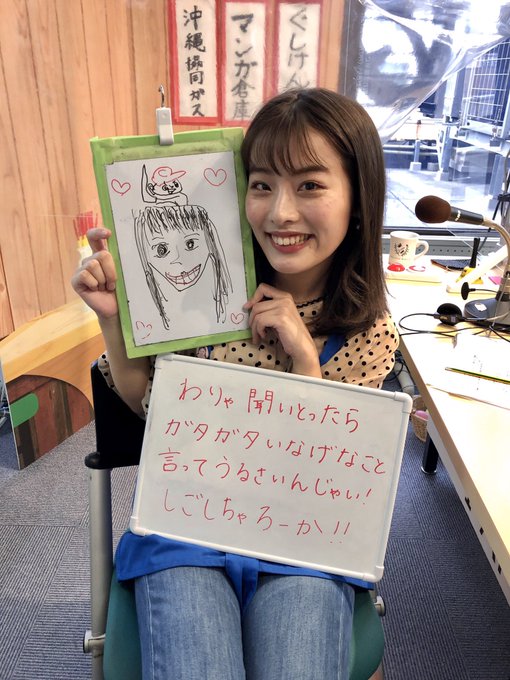 沖縄協同ガス
マンガ倉庫
ぐしけん
わりゃ聞いとったら
ガタガタいなげなこと
言ってうるさいんじゃい!
しごしちゃろーか!!